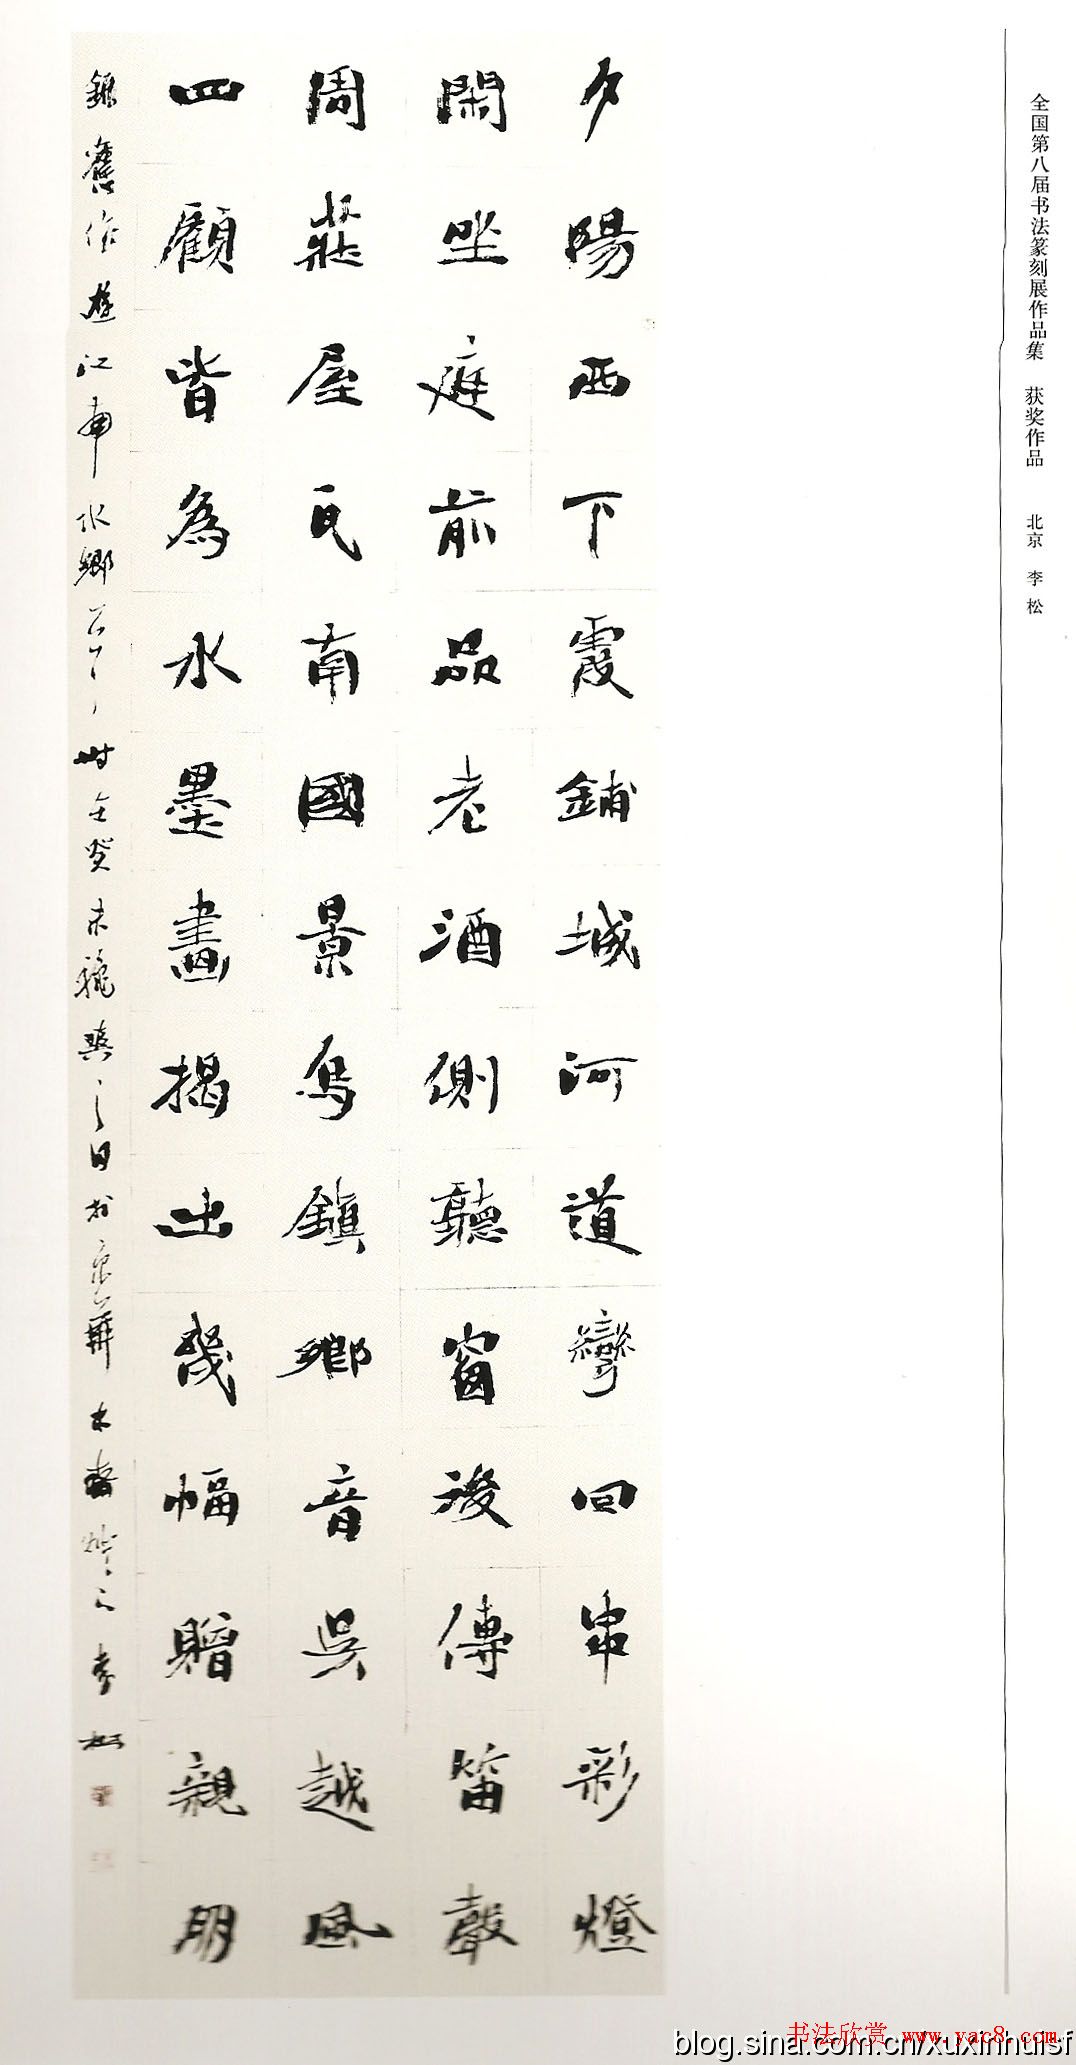 全国第八届书法篆刻展作品集 获奖作品 北京 李松
夕陽西下霞鋪城河道彎回串彩燈
閑坐庭前品老酒側聽窗後傳笛聲
周莊屋瓦南國景烏鎮鄉音吳越風
四顧皆為水墨畫揭出幾幅贈親朋
錄舊作遊江南水鄉 時在癸未 之日於京華 李松
书法欣赏 www.yac8.com
blog.sina.com.cn/xuxinhuisf